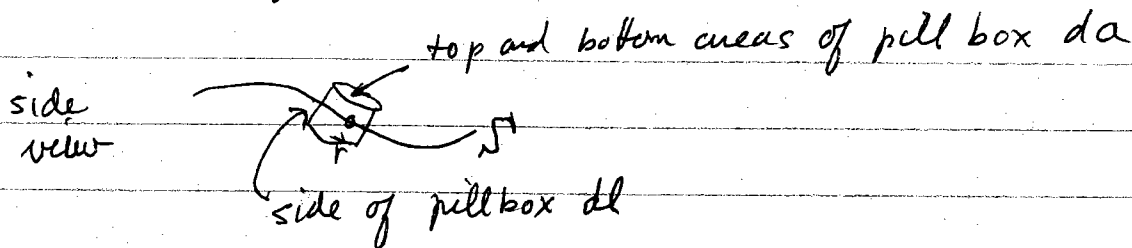 top and bottom areas of pill box da
side
veiw
r
S
side of pillbox dl